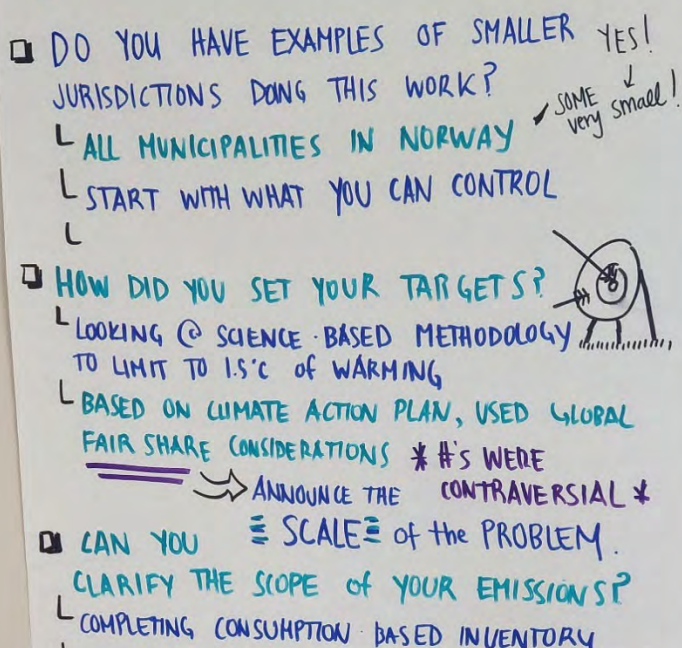 DO YOU HAVE EXAMPLES OF SMALLER YES!
JURISDICTIONS DONG THIS WORK?
SOME
very small!
ALL MUNICIPALITIES IN NORWAY
START WITH WHAT YOU CAN CONTROL
HOW DID YOU SET YOUR TARGETS?
LOOKING @ SCIENCE-BASED METHODOLOGY
TO LIMIT TO 1.5°C of WARMING
BASED ON CLIMATE ACTION PLAN, USED GLOBAL
FAIR SHARE CONSIDERATIONS * #'S WERE
CONTRAVERSIAL *
ANNOUNCE THE
SCALE of the PROBLEM.
CAN YOU
CLARIFY THE SCOPE of YOUR EMISSIONS?
COMPLETING CONSUMPTION-BASED INVENTORY